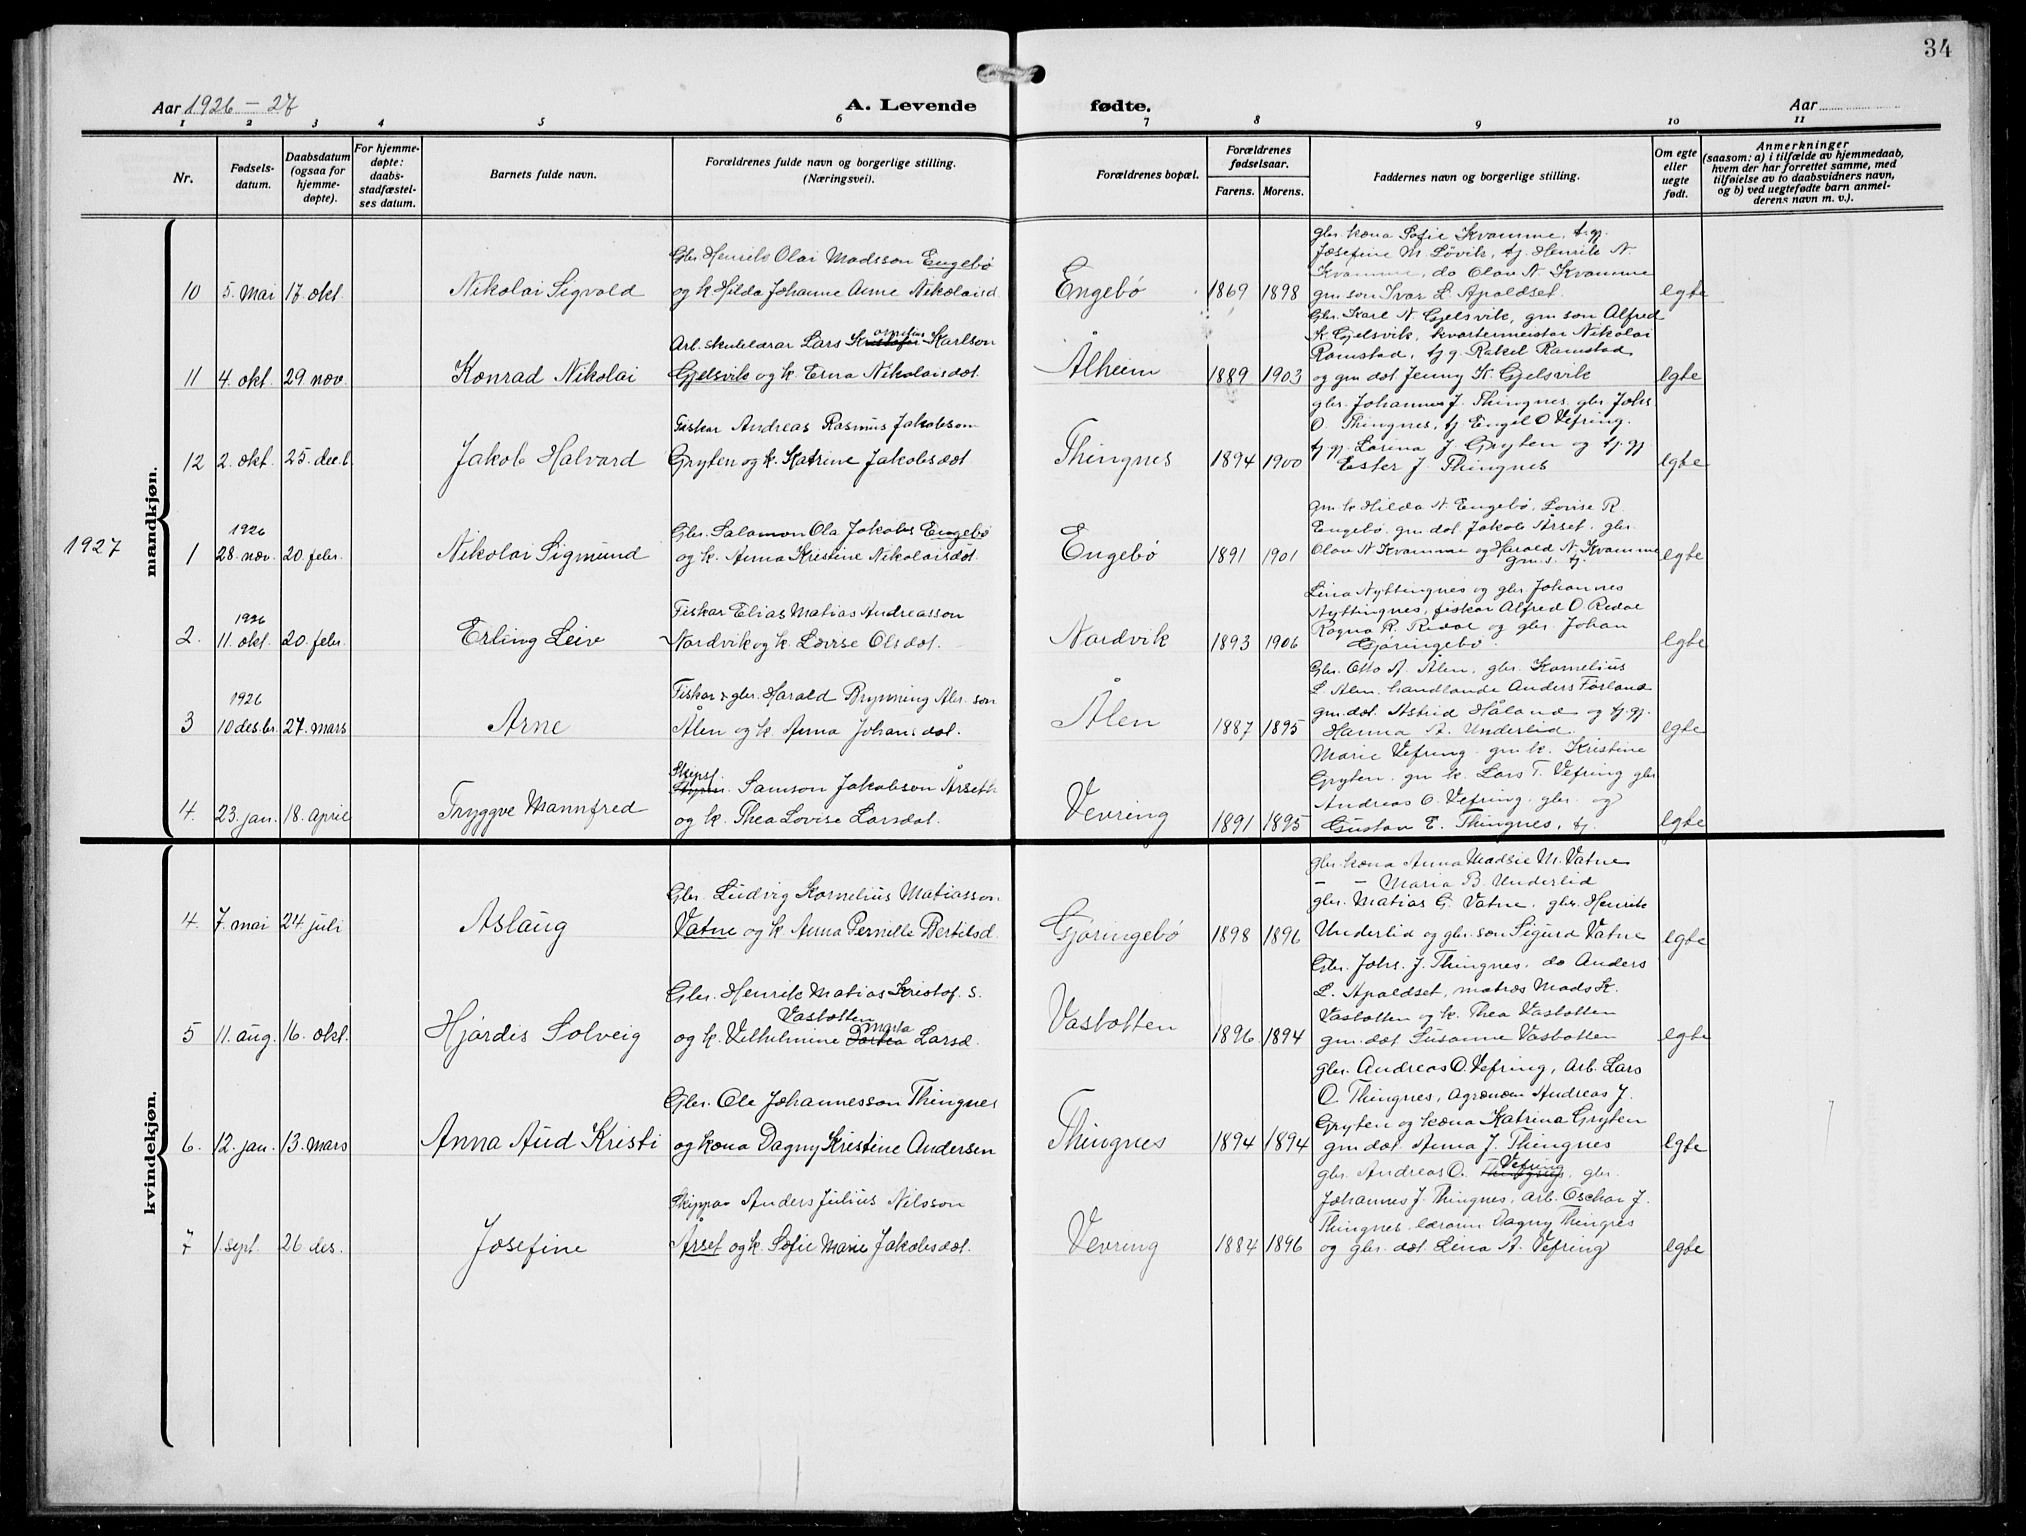 34
Aar 1926 - 27
A. Levende fødte.
Aar
1 2 3 4 5 6 7 8 9 10 11
Nr.
Fødsels-
datum.
Daabsdatum
(ogsaa for
hjemme-
døpte).
For hjemme-
døpte:
daabs-
stadfæstel-
ses datum.
Barnets fulde navn.
Forældrenes fulde navn og borgerlige stilling.
(Næringsvei).
Forældrenes bopæl.
Forældrenes
fødselsaar.
Farens. Morens.
Faddernes navn og borgerlige stilling.
Om egte
eller
uegte
født.
Anmerkninger
(saasom: a) i tilfælde av hjemmedaab,
hvem der har forrettet samme, med
tilføielse av to daabsvidners navn,
og b) ved uegtefødte barn anmel-
derens navn m. v.).
mandkjøn.
10 5. mai 17. okt. Nikolai Sigvald
Gbr Henrik Olai Madsson Engebø
og k Hilda Johanne Anne Nikolaisd.
Engebø 1869 1898
gbr. kona Sofie Kvamme, t.gj.
Josefine M. Løvik, tj Henrik N.
Kvamme, do Olav N. Kvamme
gm.son Ivar L. Apaldset.
egte
11 4. okt. 29 nov. Konrad Nikolai
Arb. skulelærar Lars Kornelius Karlson
Gjelsvik og k. Erna Nikolaisdot.
Ålheim 1889 1903
Gbr. Karl N Gjelsvik, gm son Alfred
K. Gjelsvik, kvartermeister Nikolai
Ramstad, tj g. Rakel Ramstad
og gm dot Jenny K. Gjelsvik
egte
12 2. okt. 25. des. Jakob Halvard
Fiskar Andreas Rasmus Jakobson
Gryten og k. Katrine Jakobsdot
Thingnes 1894 1900
gbr. Johannes J. Thingnes, gbr Johs.
O. Thingnes, tj Engel O Vefring.
tj gj. Lorina J. Gryten og tj. gj.
Ester J. Thingnes
egte
1927
1 1926
28. nov. 20 febr. Nikolai Sigmund
Gbr. Salamon Ola Jakobs Engebø
og k. Anna Kristine Nikolaisdot.
Engebø 1891 1901
gm k Hilda N. Engebø, Lovise R
Engebø, gm dot Jakob Årset, gbr.
Olav N Kvamme og Harald N. Kvamme
gm.s. tj.
egte
2. 1926
11. okt. 20 febr. Erling Leiv
Fiskar Elias Matias Andreasson
Nordvik og k. Lovise Olsdot.
Nordvik 1893 1906
Lina Nyttingnes og gbr Johannes
Nyttingnes, fiskar Alfred O. Redal
Ragna R. Redal og gbr. Johan
Gjøringebø
egte
3 1926
10 des.br. 27. mars Arne
Fiskar & gbr. Harald Brynning Abr.son
Ålen og k. Anna Johansdot.
Ålen 1887 1895
Gbr. Otto A. Ålen, gbr. Kornelius
L. Ålen, handlande Anders Førland
gm.dot. Astrid Håland og tj.gj.
Hanna A. Underlid.
egte
4. 23. jan. 18. april Tryggve Mannfred
Skips. Samson Jakobson Årseth
og k. Thea Lovise Larsdot.
Vevring 1891 1895
Marie Vefring, gm k. Kristine
Gryten, gm k. Lars T. Vefring gbr
Andreas O. Vefring, gbr. og
Gustav E. Thingnes, tj.
egte
kvindekjøn.
4. 7. mai 24 juli Aslaug
Gbr. Ludvig Kornelius Matiasson
Vatne og k Anna Pernille Bertilsd.
Gjøringebø 1898 1896
gbr. kona Anna Madsie M. Vatne
— — Maria B. Underlid
gbr. Matias G. Vatne, gbr. Henrik
Underlid og gbr. son Sigurd Vatne
egte
5 11. aug. 16. okt. Hjørdis Solveig
Gbr. Henrik Matias Kristof. s.
Vasbotten
og k. Vilhelmine Marta Larsd.
Vasbotten 1896 1894
Gbr. Johs. J. Thingnes, do Anders
L. Apaldset, matros Mads K.
Vasbotten og k. Thea Vasbotten
gm. dot Susanne Vasbotten
egte
6. 12. jan. 13. mars Anna Aud Kristi
Gbr. Ole Johannesson Thingnes
og kona Dagny Kristine Andersen
Thingnes 1894 1894
gbr. Andreas O. Vefring, Arb. Lars
O. Thingnes, Agronom Andreas J.
Gryten og kona Katrina Gryten
gm. dot. Anna J. Thingnes
egte
7 1. sept. 26 des. Josefine
Skippar Anders Julius Nilsson
Årset og k. Sofie Marie Jakobsdot.
Vevring 1884 1896
gbr. Andreas O. Vefring, gbr.
Johannes J. Thingnes, Arb. Oschar J.
Thingnes, lærarin. Dagny Thingnes
og gbr. dot. Lina A. Vefring
egte